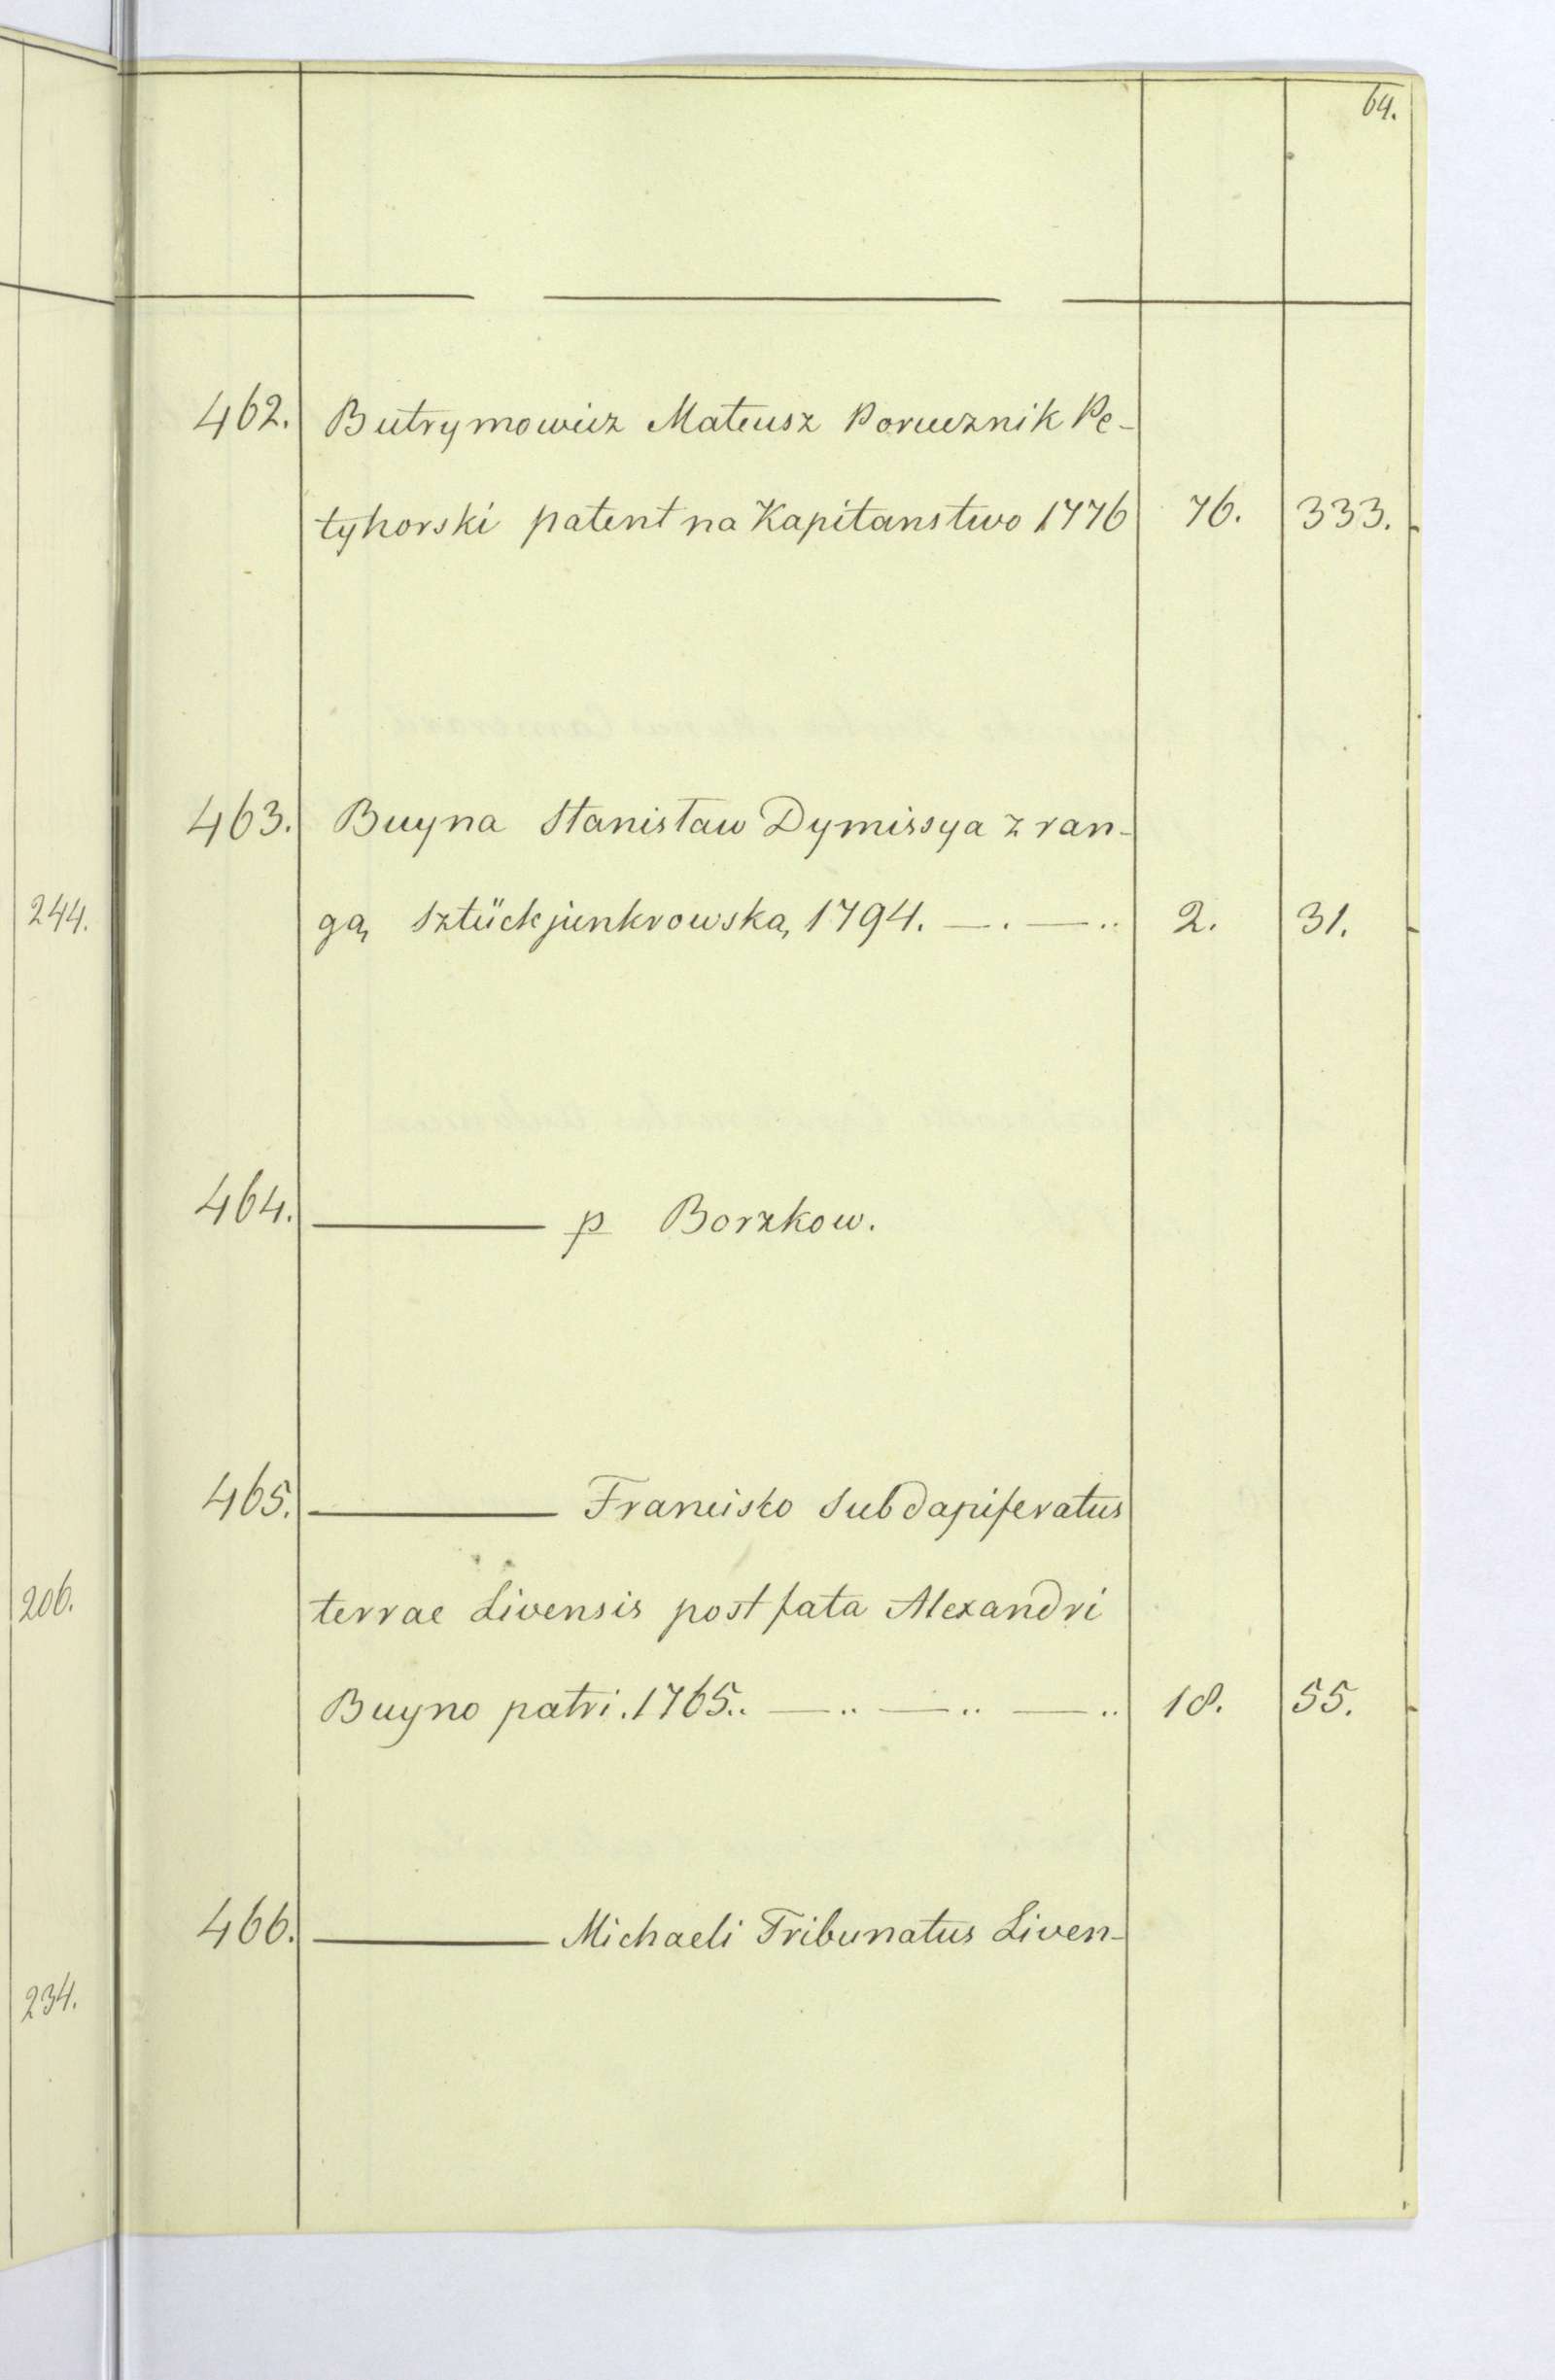 64.
462. Butrymowicz Mateusz Porucznik Pe-
tyhorski patent na Kapitanstwo 1776 76. 333.
463. Buyna Stanisław Dymissya z ran-
244.
gą Sztückjunkrowską 1794. — . — .. 2. 31.
464. ——— p Borzkow.
465. ——— Francisco Subdapiferatus
206.
terrae Livensis post fata Alexandri
Buyno patri. 1765.. — .. — .. — .. 18. 55.
466. ——— Michaeli Tribunatus Liven-
234.